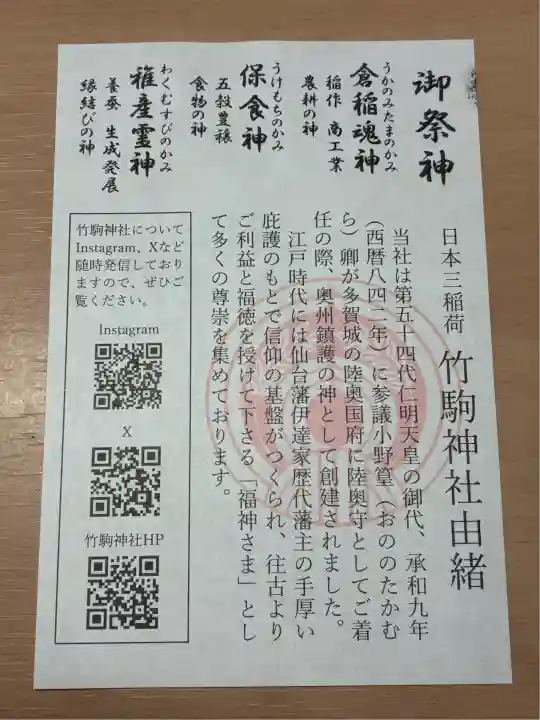 御祭神
うかのみたまのかみ
倉稲魂神
稲作 商工業
農耕の神
うけもちのかみ
保食神
五穀豊穣
食物の神
わくむすびのかみ
稚産霊神
養蚕 生成発展
縁結びの神
日本三稲荷 竹駒神社由緒
当社は第五十四代仁明天皇の御代、承和九年
(西暦八四二年)に参議小野篁(おののたかむ
ら)卿が多賀城の陸奥国府に陸奥守としてご着
任の際、奥州鎮護の神として創建されました。
江戸時代には仙台藩伊達家歴代藩主の手厚い
庇護のもとで信仰の基盤がつくられ、往古より
ご利益と福徳を授けて下さる「福神さま」とし
て多くの尊崇を集めております。
竹駒神社について
Instagram、Xなど
随時発信しており
ますので、ぜひご
覧ください。
Instagram
X
竹駒神社HP